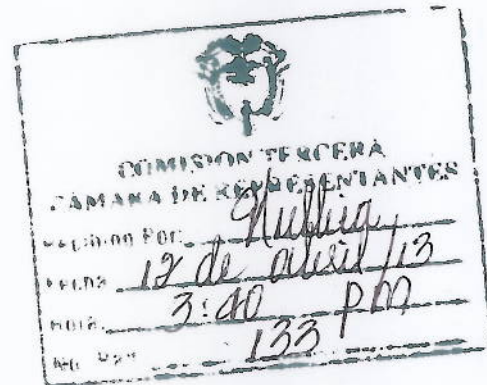 COMISION TERCERA
CAMARA DE REPRESENTANTES
Recibido Por: Nubia
Fecha 12 de abril/13
Hora 3:40 pm
No. 133